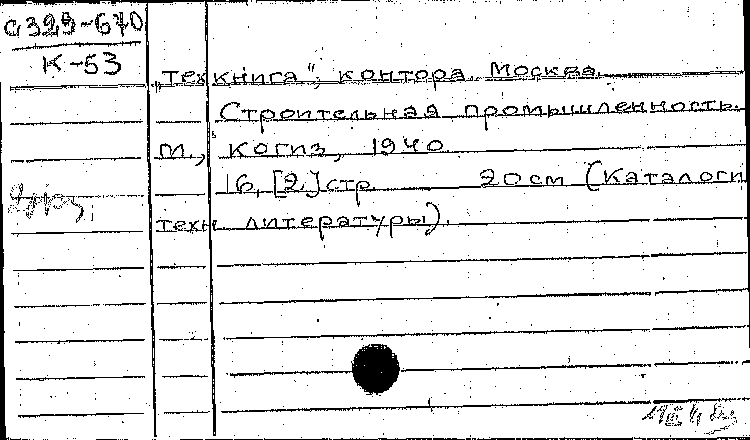 С329-670
К-53
„Техкнига“, контора. Москва.
Строительная промышленность.
М., Когиз, 1940
16, [2] стр. 20 см (Каталоги
техн. литературы).